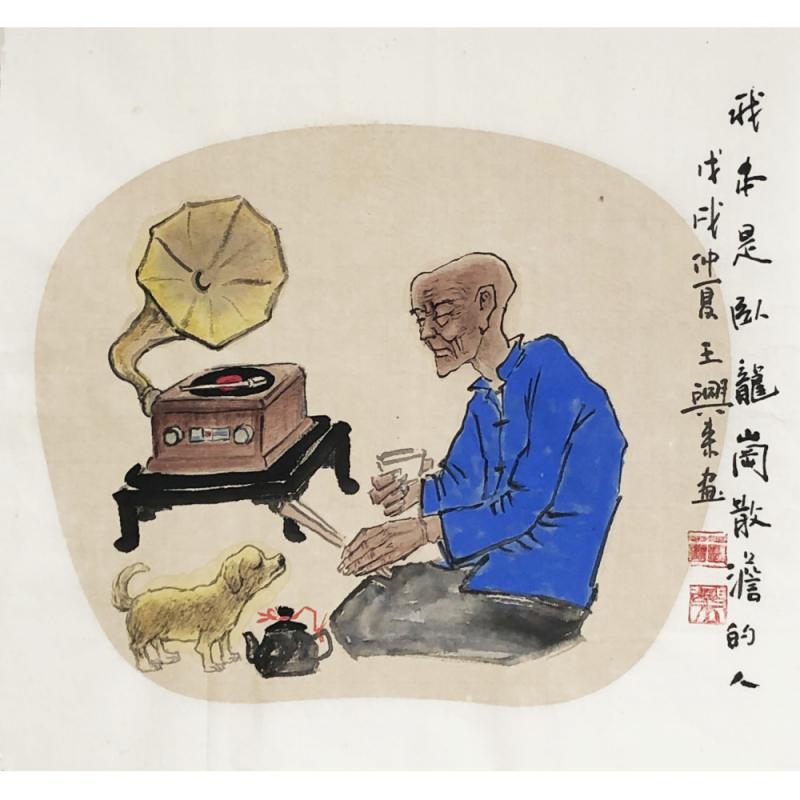 我本是臥龍崗散澹的人
戊戌仲夏王興來畫